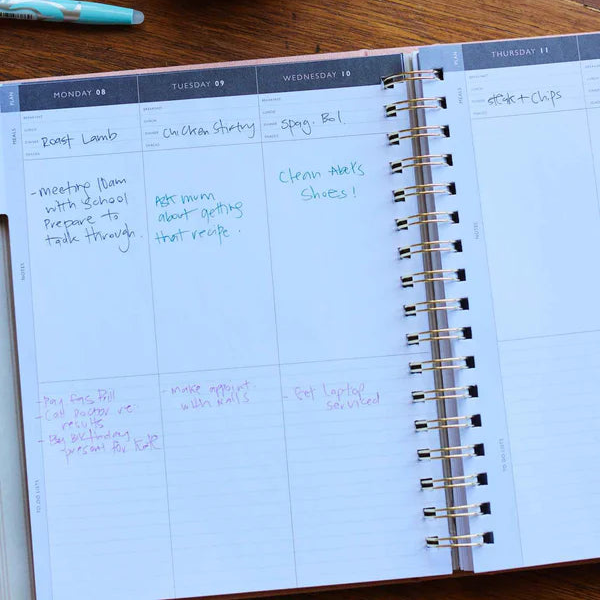 MONDAY 08
TUESDAY 09
WEDNESDAY 10
THURSDAY 11
PLAN
MEALS
BREAKFAST
LUNCH
DINNER
SNACKS
Roast Lamb
BREAKFAST
LUNCH
DINNER
SNACKS
Chicken Stirfry
BREAKFAST
LUNCH
DINNER
SNACKS
Spag. Bol.
PLAN
MEALS
BREAKFAST
LUNCH
DINNER
SNACKS
Steak + Chips
NOTES
- Meeting 10am
with School
Prepare to
talk through.
Ask mum
about getting
that recipe.
Clean Abel's
Shoes!
NOTES
TO DO LISTS
- Pay gas Bill
- Call Doctor re:
results
- Buy Birthday
present for
- Make appoint.
with Nails
- Get laptop
serviced
TO DO LISTS